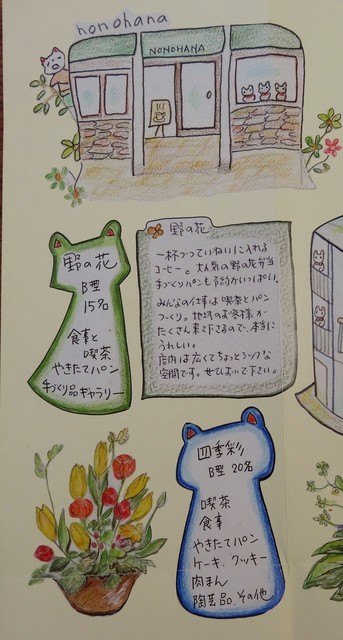 nonohana
NONOHANA
野の花
B型
15名
食事と
喫茶
やきたてパン
手づくり品ギャラリー
野の花
一杯づつていねいに入れる
コーヒー。大人気の野の花弁当
手づくりパンも評判がいっぱい。
みんなの仕事は喫茶とパン
つくり。地域のお客様が
たくさん来て下さるので、本当に
うれしい。
店内は広くてちょっとシックな
空間です。ぜひおいで下さい。
四季彩
B型 20名
喫茶
食事
やきたてパン
ケーキ、クッキー
肉まん
陶芸品、その他